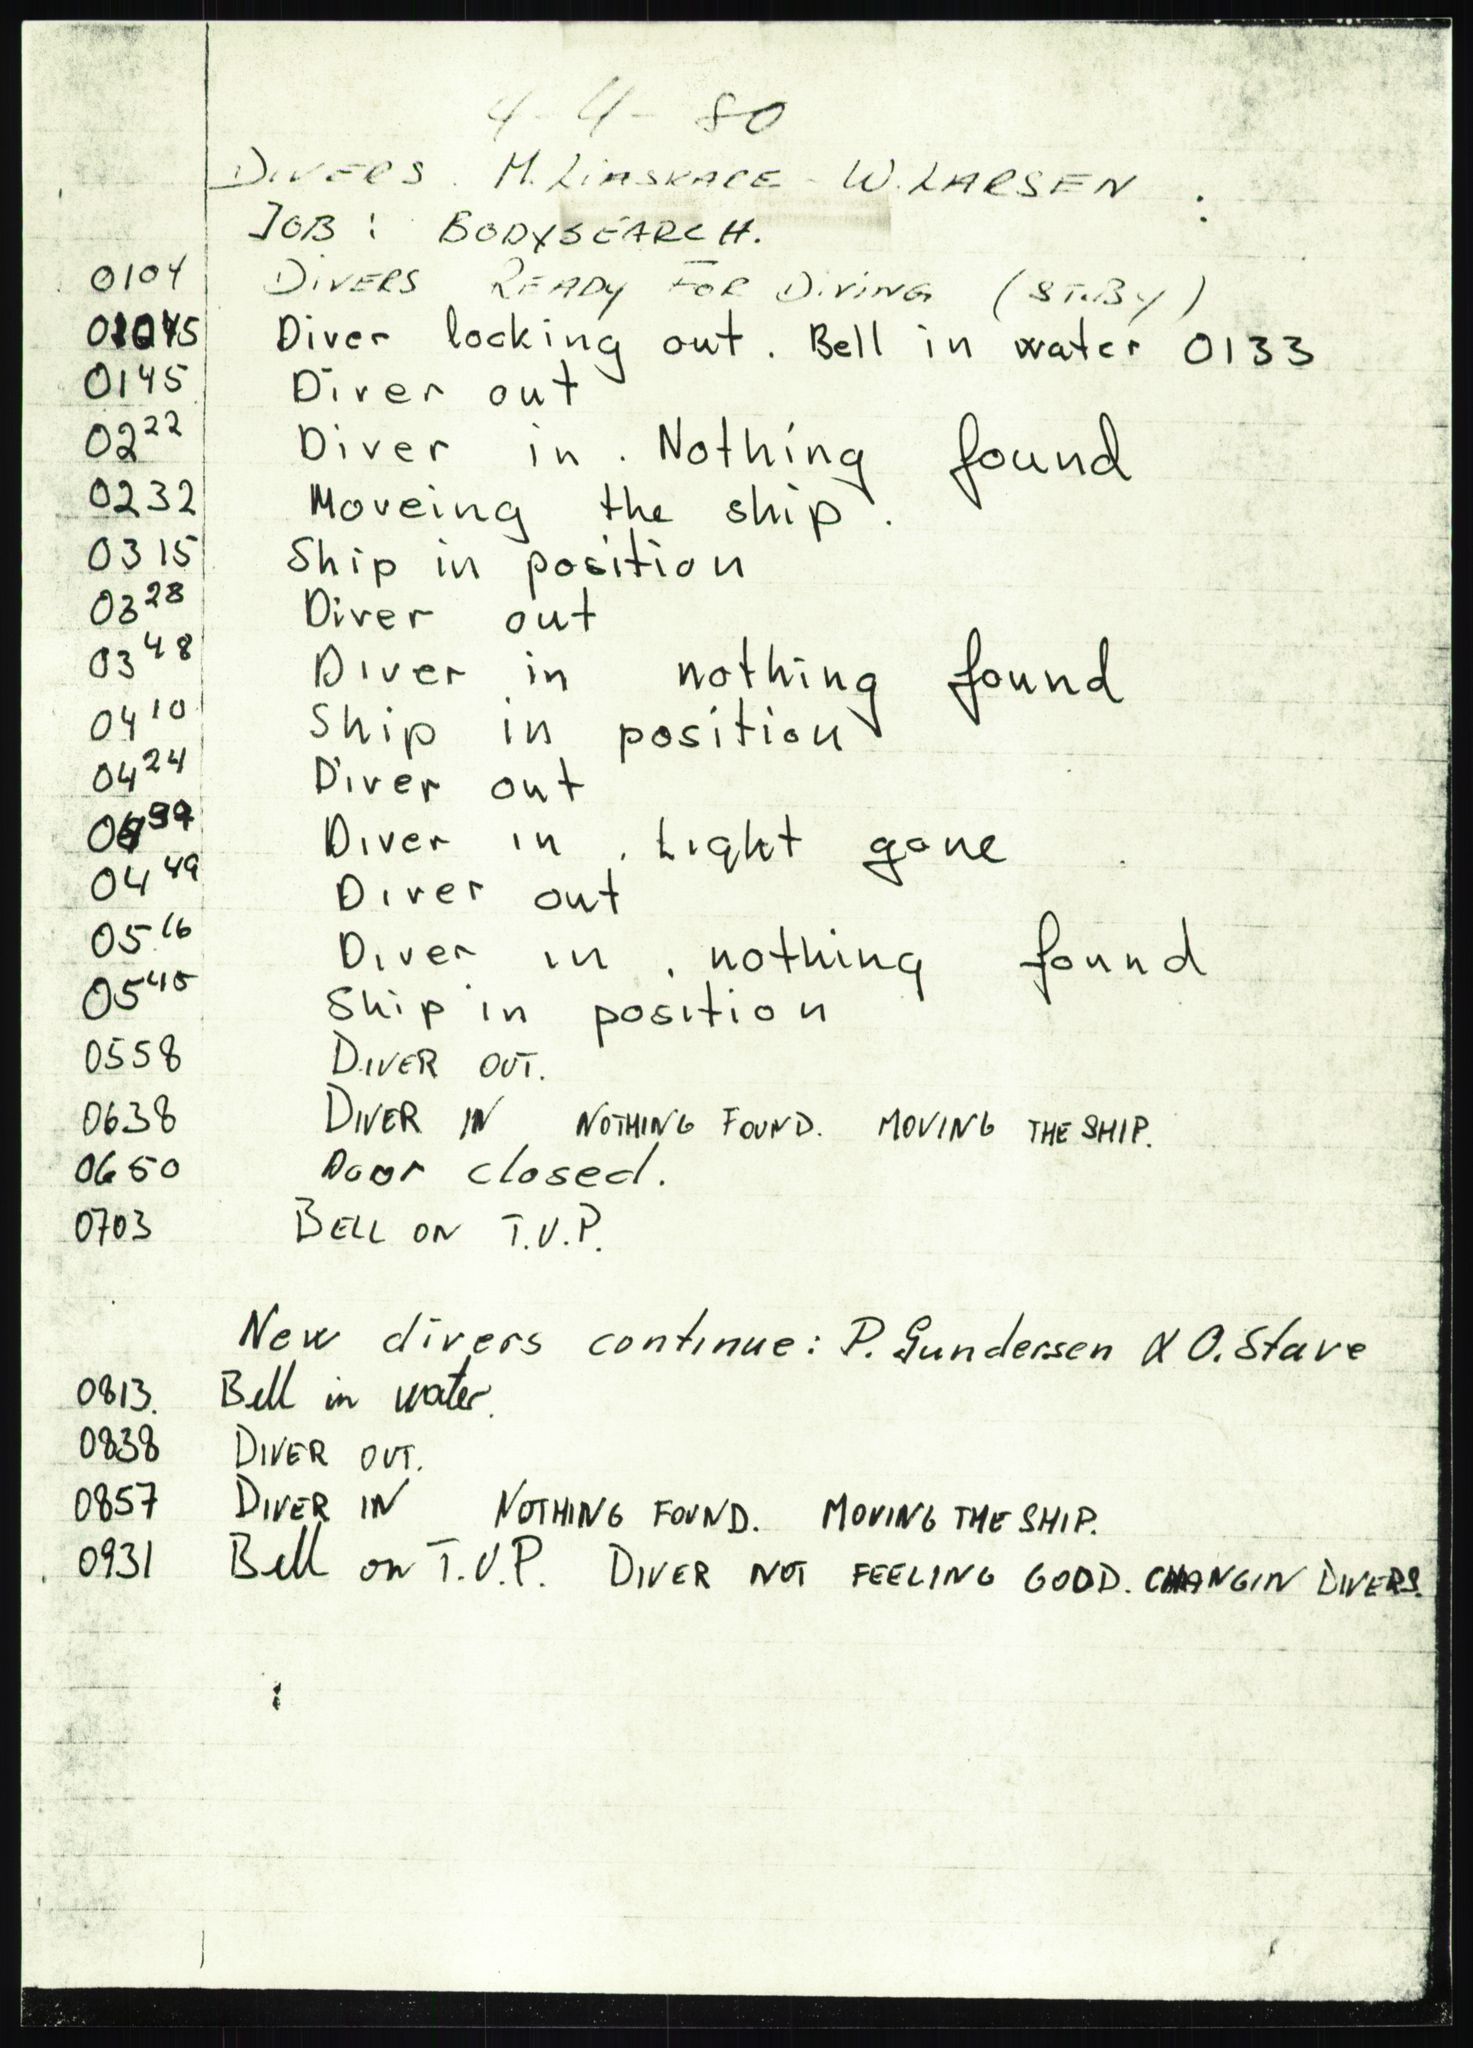 4-4-80
DIVERS. M. W. LARSEN
JOB: BODYSEARCH.
0104 DIVERS READY FOR DIVING (ST.BY)
Diver locking out. Bell in water 0133
0145 Diver out
0222 Diver in. Nothing found
0232 Moveing the ship.
0315 Ship in position
0328 Diver out
0348 Diver in nothing found
0410 Ship in position
0424 Diver out
Diver in. Light gone
0449 Diver out
0516 Diver in. nothing found
0545 Ship in position
0558 DIVER OUT.
0638 DIVER IN NOTHING FOUND. MOVING THE SHIP.
0650 Door closed.
0703 BELL ON T.U.P.
New divers continue: P. Gundersen & O. Stave
0813. Bell in water.
0838 DIVER OUT.
0857 DIVER IN NOTHING FOUND. MOVING THE SHIP.
0931 Bell on T.U.P. DIVER NOT FEELING GOOD. CHANGIN DIVERS.